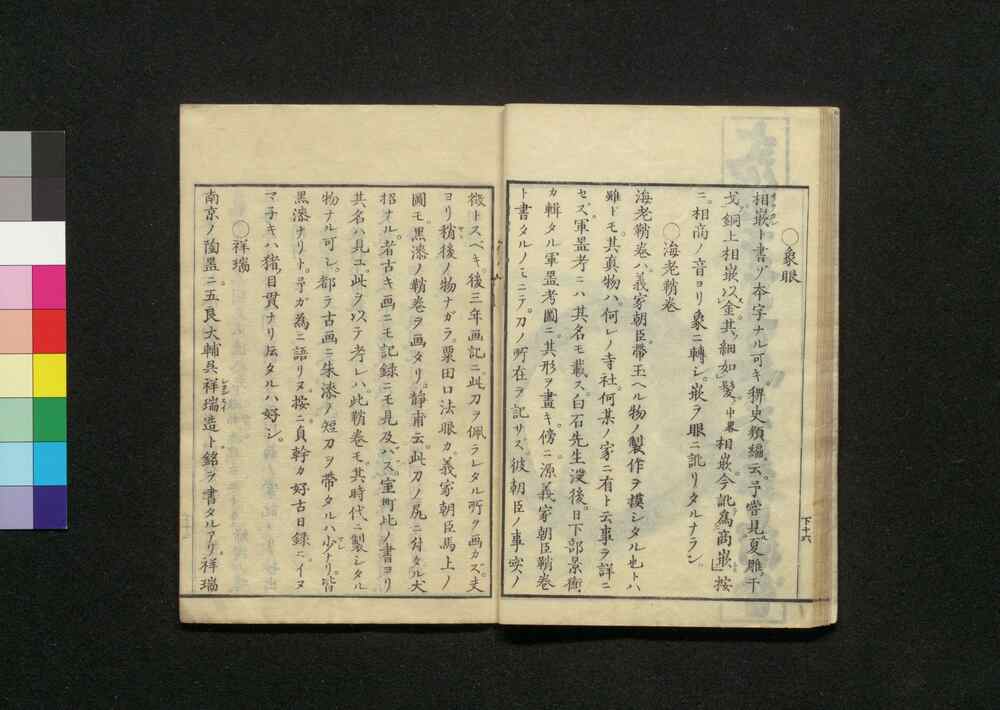 ○象眼
相嵌ト書ク゛本字ナル可キ稗史類編云予嘗見夏雕干
戈銅上相嵌以金其細如髪中畧相嵌今訛為商嵌按
ニ相商ノ音ヨリ象ニ轉シ嵌ヲ眼ニ訛リタルナラン
○海老鞘卷
海老鞘卷ハ義家朝臣帶玉ヘル物ノ製作ヲ摸シタル也トハ
雖ドモ其真物ハ何レノ寺社何某ノ家ニ有ト云事ヲ詳ニ
セズ軍噐考ニハ其名モ載ス白石先生没後日下部景衡
カ輯タル軍噐考圖ニ其形ヲ畫キ傍ニ源義家朝臣鞘卷
ト書タルノミニテ刀ノ所在ヲ記サズ彼朝臣ノ事実ノ
下十六
徴トスベキ後三年画記ニ此刀ヲ佩ラレタル所ヲ画カズ夫
ヨリ稍後ノ物ナガラ粟田口法眼カ義家朝臣馬上ノ
圖モ黒漆ノ鞘卷ヲ画タリ静甫云此刀ノ尻ニ付タル犬
招オル者古キ画ニモ記録ニモ見及バズ室町比ノ書ヨリ
其名ハ見ユ此ヲ以テ考レハ此鞘卷モ其時代ニ製シタル
物ナル可シ都ラ古画ニ朱漆ノ短刀ヲ帶タルハ少ナリ皆
黒漆ナリト予ガ為ニ語リヌ按ニ貞幹カ好古日録ニイヌ
マ子キハ猪目貫ナリ伝タルハ好シ
○祥瑞
南京ノ陶噐ニ五良大輔呉祥瑞造ト銘ヲ書タルアリ祥瑞